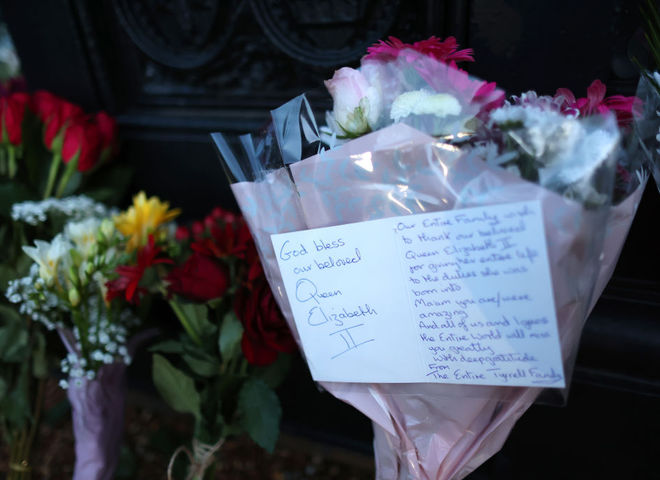 God bless
our beloved
Queen
Elizabeth
II
Our Entire Family wish
to thank our beloved
Queen Elizabeth II
for giving her entire life
to the duties she was
born into
Ma'am you are/were
amazing
And all of us and I guess
the Entire World will miss
you greatly
with deep gratitude
From
The Entire Tyrrell Family